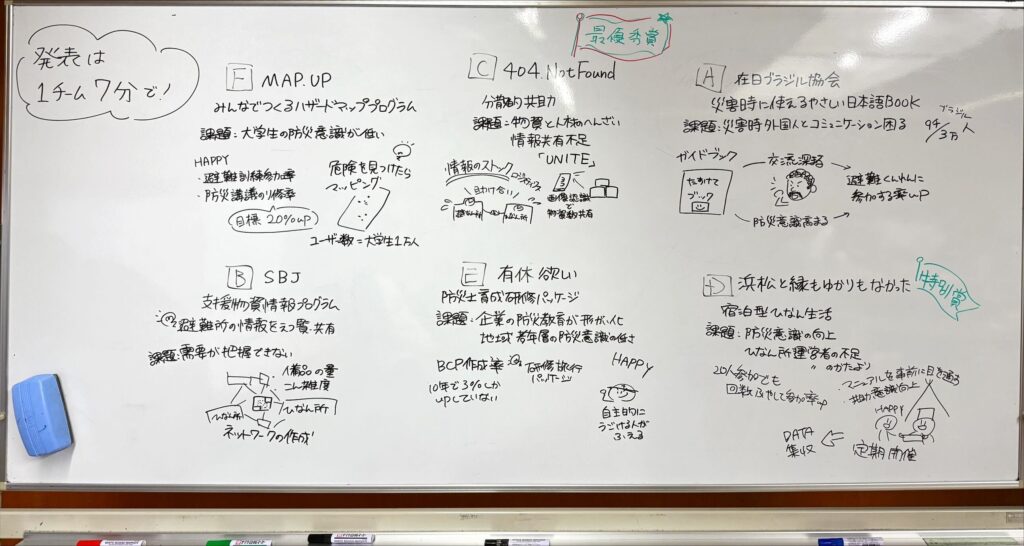 発表は
1チーム7分で!
最優秀賞
F MAP.UP
みんなでつくるハザードマッププログラム
課題:大学生の防災意識が低い
HAPPY
・避難訓練参加率
・防災講議のリ修率
目標 20%up
危険を見つけたら
マッピング
ユーザー数=大学生1万人
C 404.NotFound
分散的共助
課題:物資と人材のへんざい
情報共有不足
「UNITE」
情報のストック
助け合い
画像認識で
A 在日ブラジル協会
災害時に使えるやさしい日本語BOOK
課題:災害時外国人とコミュニケーション困る
ブラジル
94/3万人
ガイドブック
たすけて
ブック
交流深まる
防災意識高まる
避難くんれんに
参加する率up
B SBJ
支援物資情報プログラム
避難所の情報をえつ覧・共有
課題:需要が把握できない
備品の量
こんざつ度
ひなん所
ひなん所
ネットワークの作成
E 有休欲しい
防災士育成研修パッケージ
課題:企業の防災教育が形がい化
地域 若年層の防災意識の低さ
BCP作成率
10年で3%しか
upしていない
研修旅行
パッケージ
HAPPY
自主的に
うごける人が
ふえる
D 浜松と縁もゆかりもなかった
特別賞
宿泊型ひなん生活
課題:防災意識の向上
ひなん所運営者の不足
〃 のかたより
20人参加でも
回数ふやして参加率up
・マニュアルを事前に目を通す
・共助意識向上
HAPPY
定期開催
DATA
集収